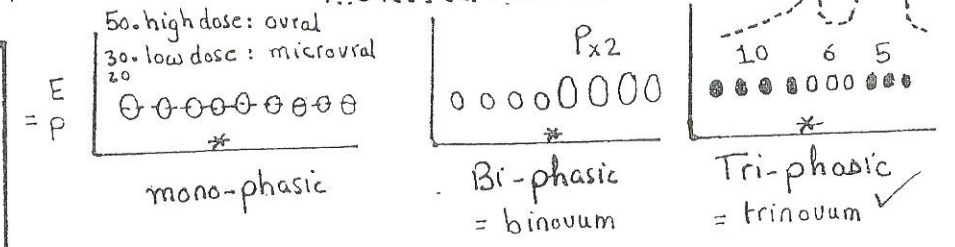 50. high dose: ovral
30. low dose: microvral
20
= E
P
*
mono-phasic
Px2
*
Bi-phasic
= binovum
10 6 5
*
Tri-phasic
= trinovum ✓